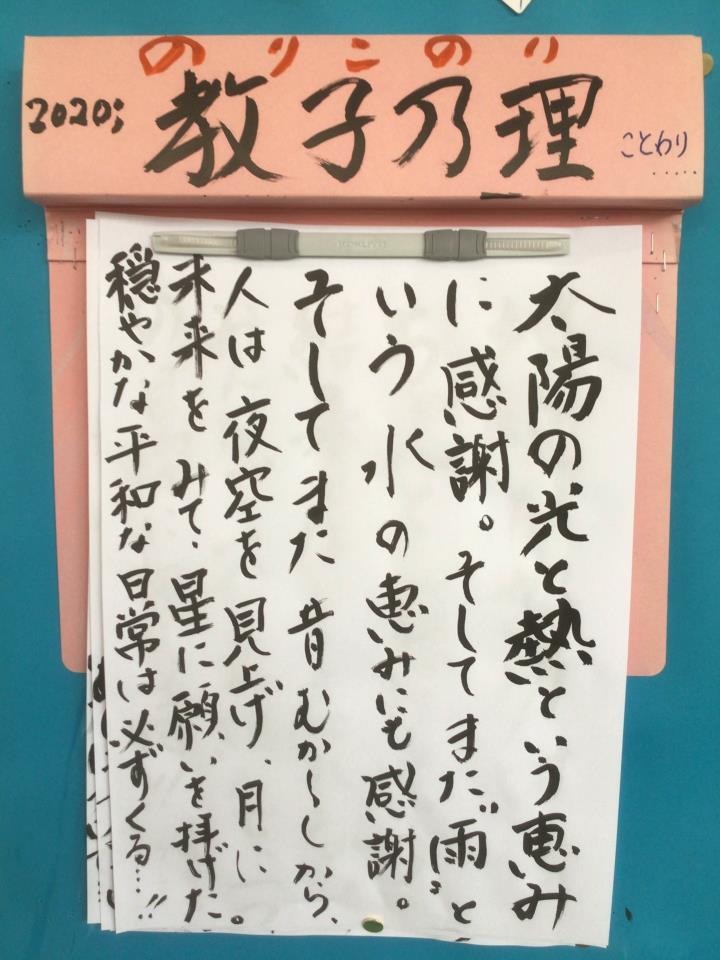 のりこのり
2020; 教子乃理 ことわり.....
KOKUYO
太陽の光と熱という恵み
に感謝。そしてまた"雨"と
いう水の恵みにも感謝。
そしてまた昔むかしから、
人は夜空を見上げ、月に
未来をみて、星に願いを捧げた。
穏やかな平和な日常は必ずくる…!!